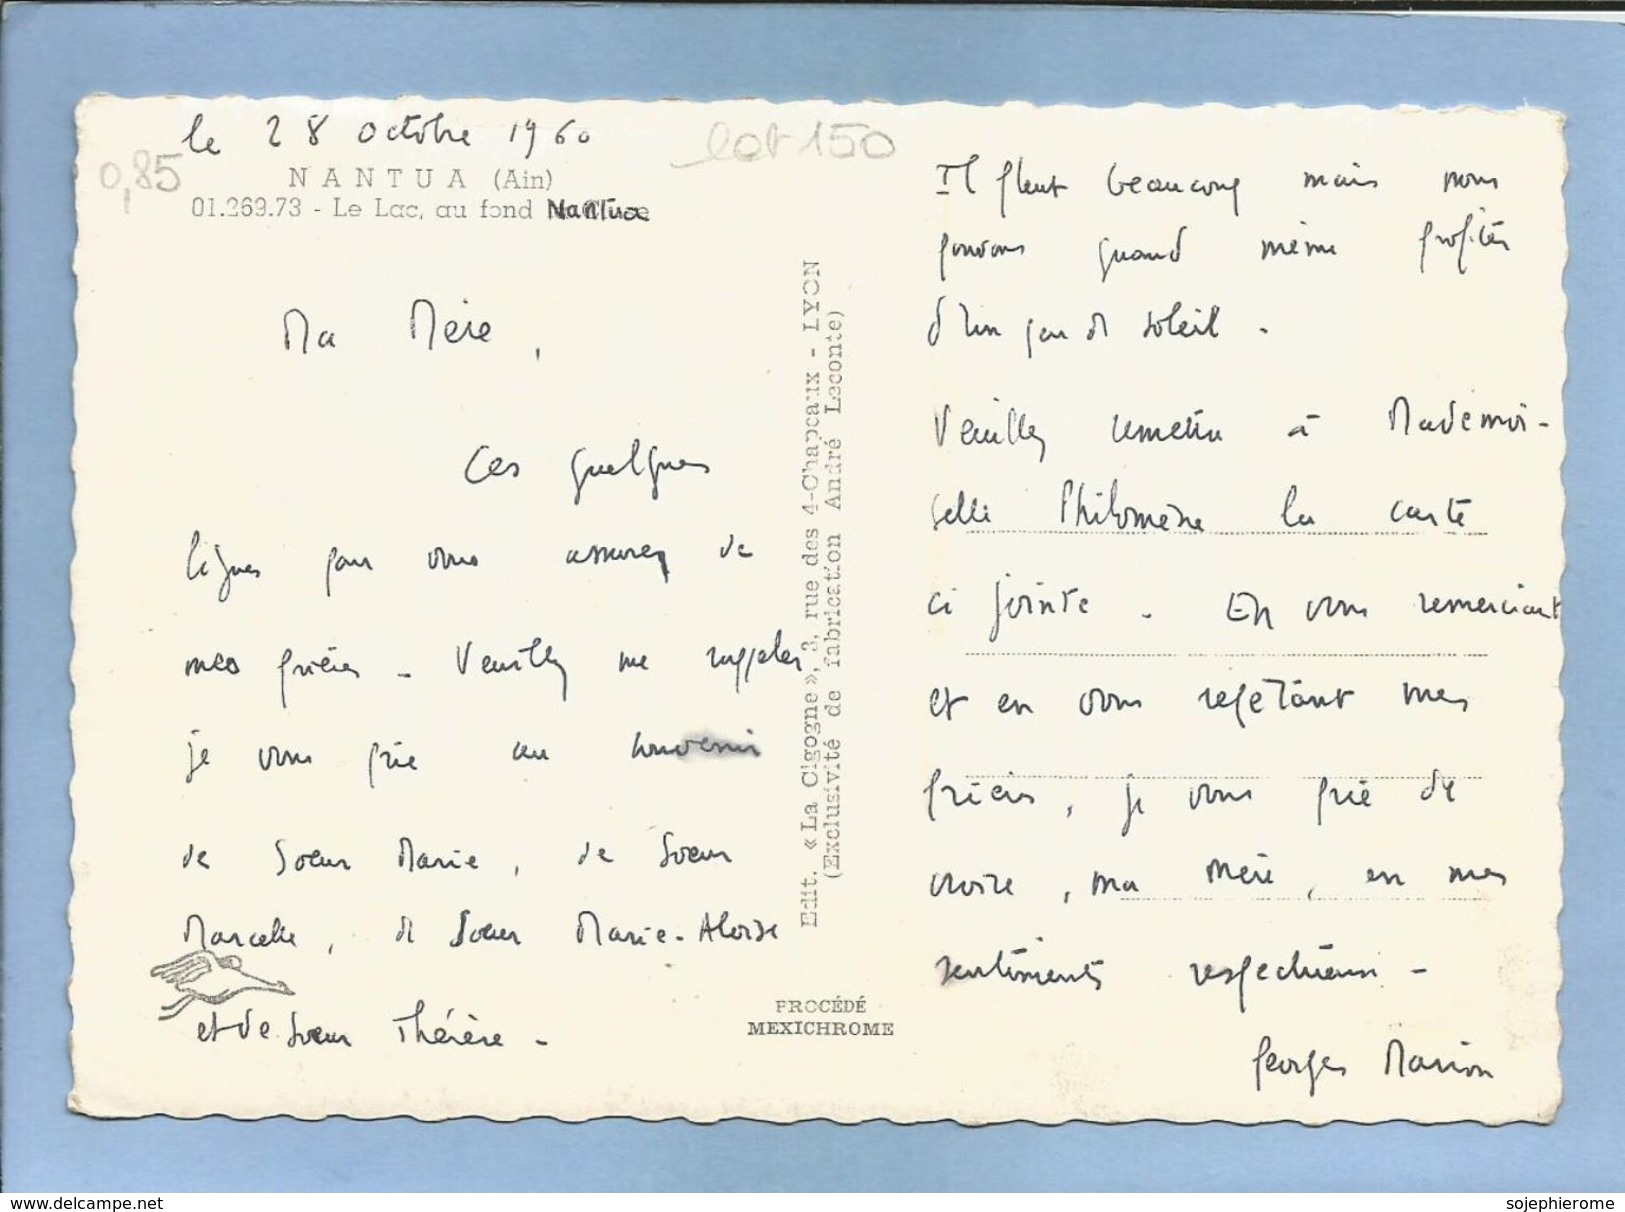 le 28 octobre 1960
lot 150
0,85
NANTUA (Ain)
01.269.73 - Le Lac, au fond Nantua
Ma Mère,
Ces quelques
lignes pour vous assurer de
mes prières - Veuillez me rappeler
je vous prie au souvenir
de Soeur Marie, de Soeur
Marcelle, de Soeur Marie-Aloïse
et de Soeur Thérèse -
Edit. « La Cigogne », 3, rue des 4-Chapeaux - LYON
(Exclusivité de fabrication André Leconte)
PROCÉDÉ
MEXICHROME
Il pleut beaucoup mais nous
pouvons quand même profiter
d'un peu de soleil -
Veuillez remettre à Mademoi-
selle Philomène la carte
ci jointe - En vous remerciant
et en vous répétant mes
prières, je vous prie de
croire, ma Mère, en mes
sentiments respectueux -
Georges Marion
delcampe.net
sojephierome